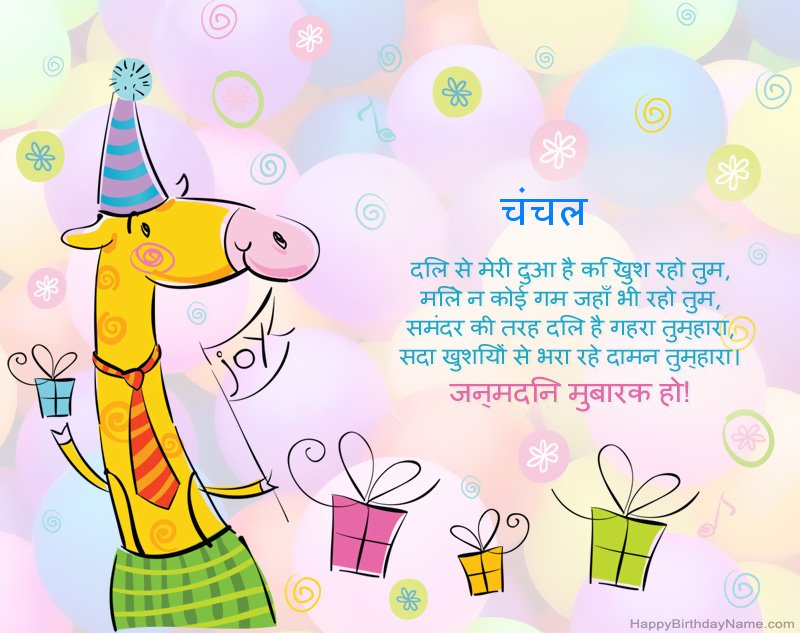 चंचल
दलि से मेरी दुआ है क िखुश रहो तुम,
मलिे न कोई गम जहाँ भी रहो तुम,
समंदर की तरह दलि है गहरा तुम्‌हारा,
सदा खुशयिों से भरा रहे दामन तुम्‌हारा।
जन्‌मदनि मुबारक हो!
joy
HappyBirthdayName.com